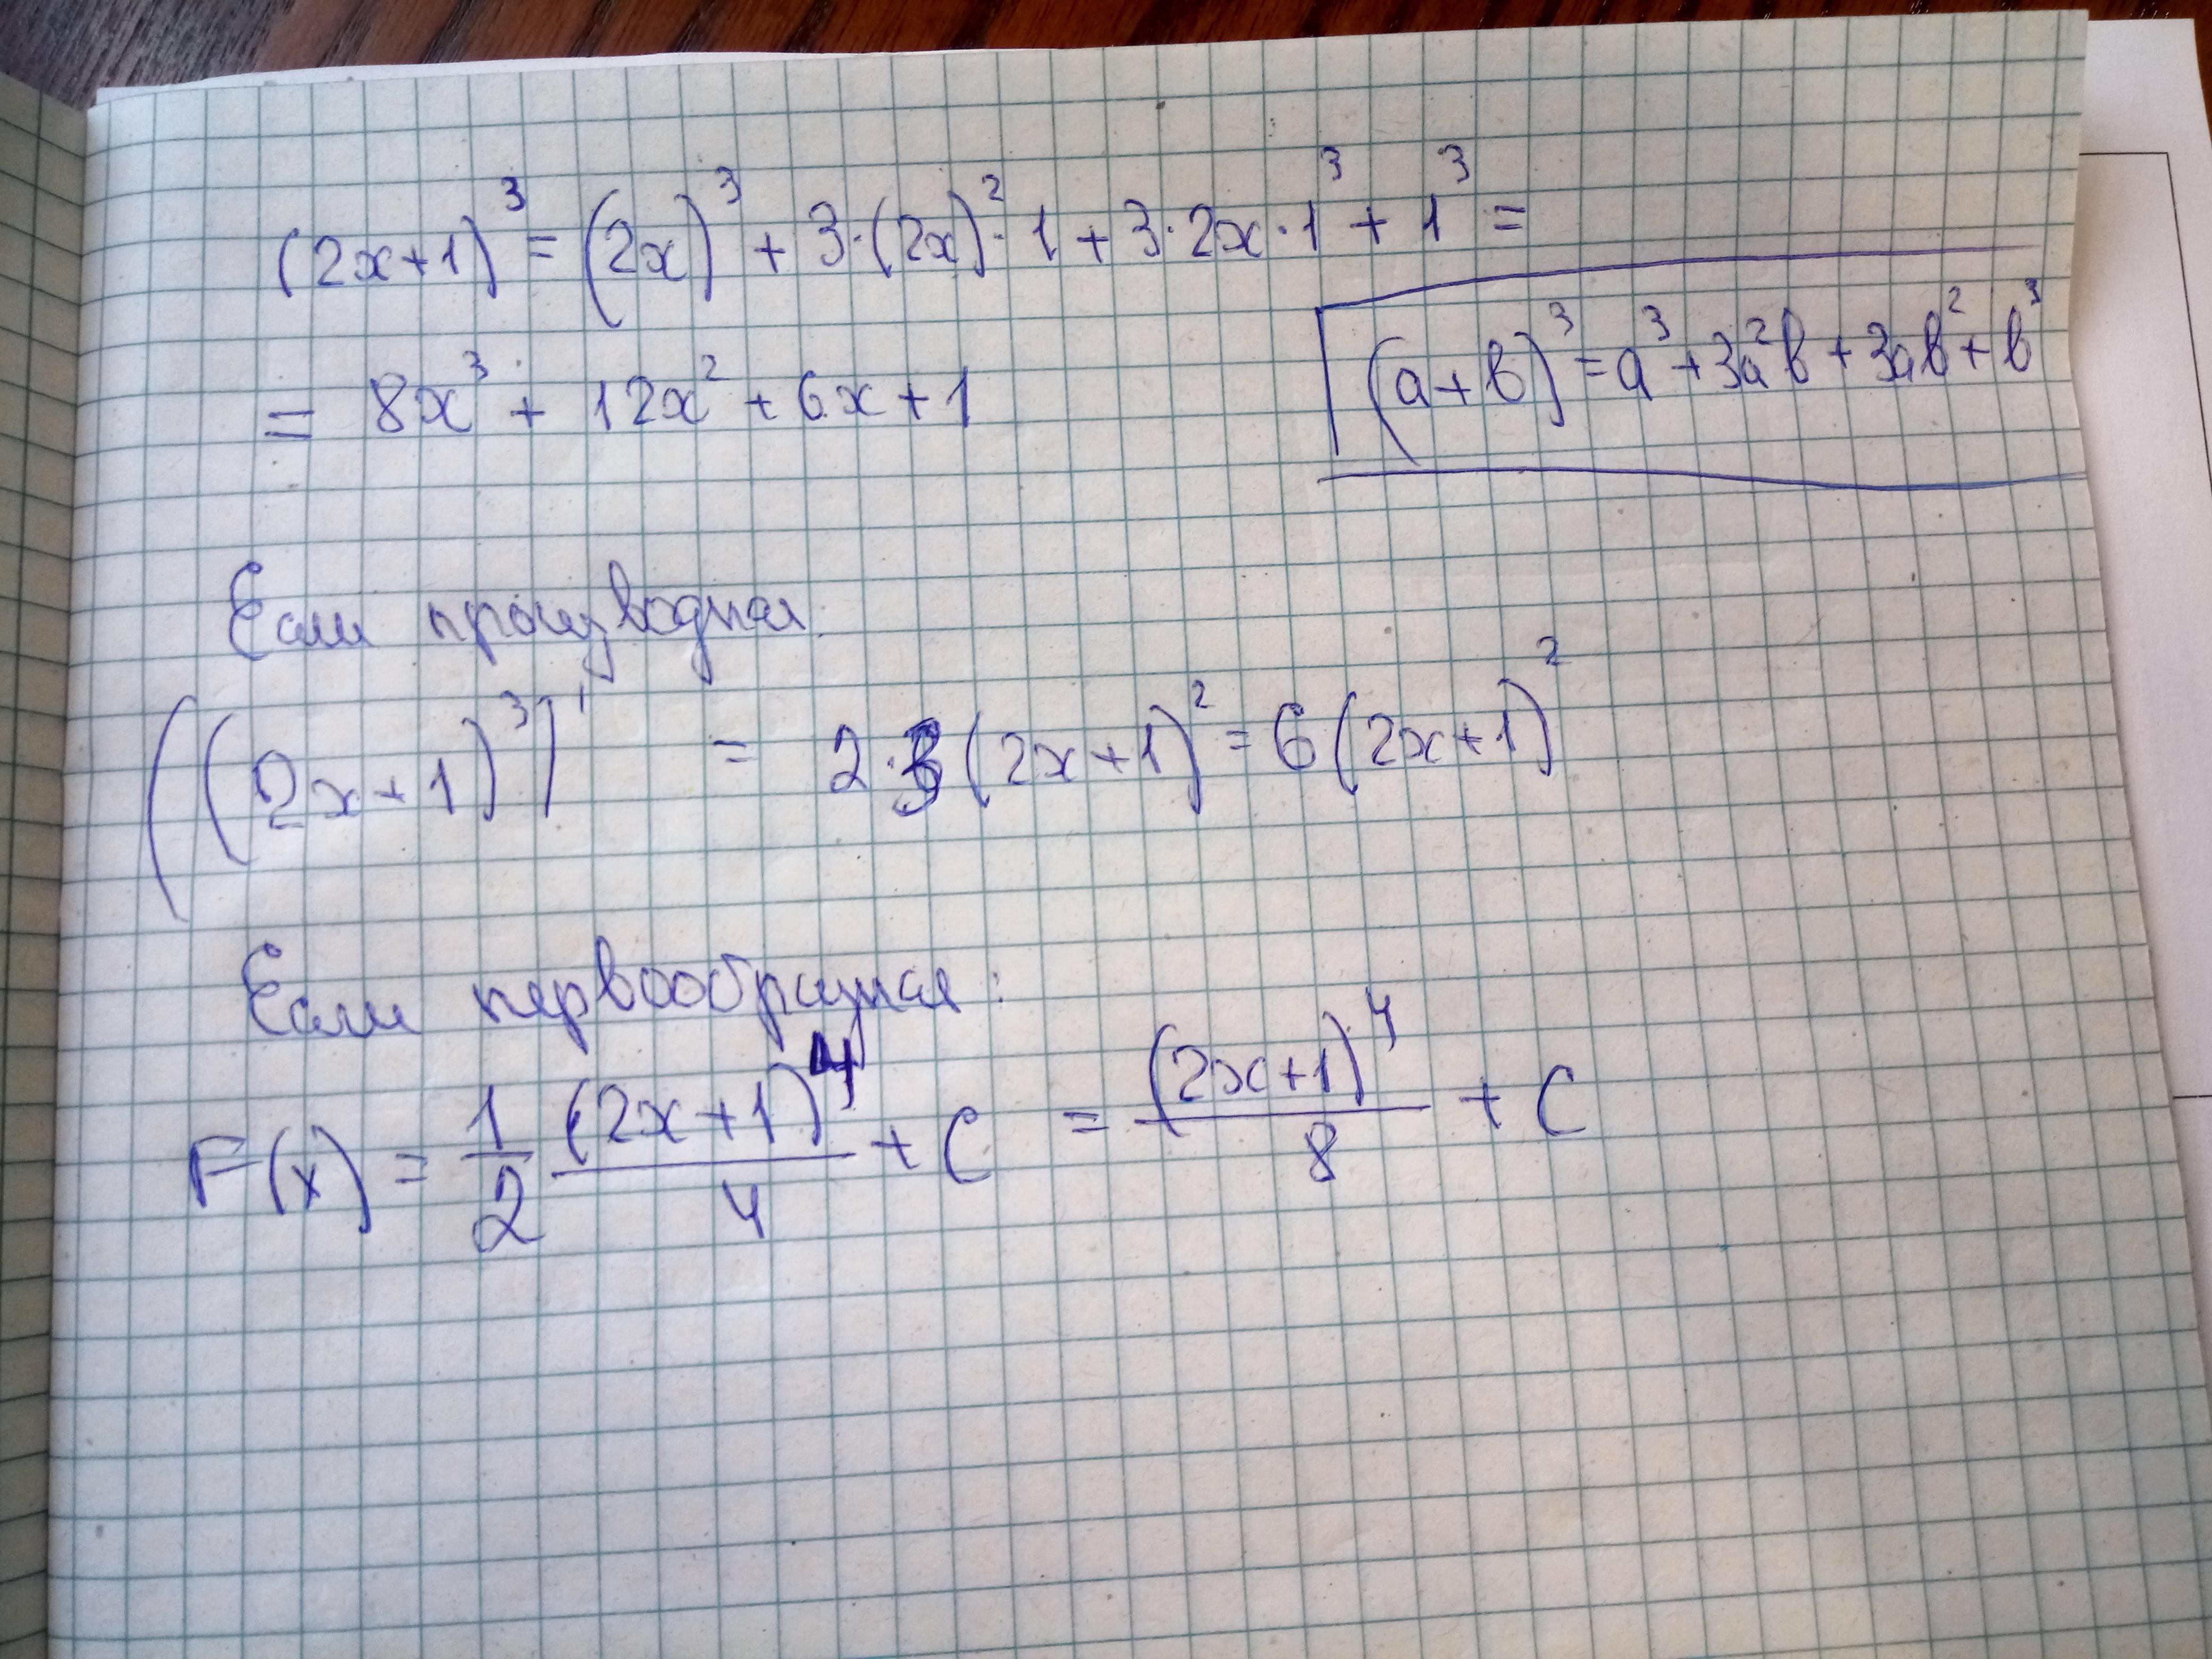 (2x+1)³ = (2x)³ + 3·(2x)²·1 + 3·2x·1³ + 1³ =
= 8x³ + 12x² + 6x + 1
(a+b)³ = a³ + 3a²b + 3ab² + b³
Если производная
((2x+1)³)' = 2·3(2x+1)² = 6(2x+1)²
Если первообразная:
F(x) = 1/2 (2x+1)⁴/4 + C = (2x+1)⁴/8 + C